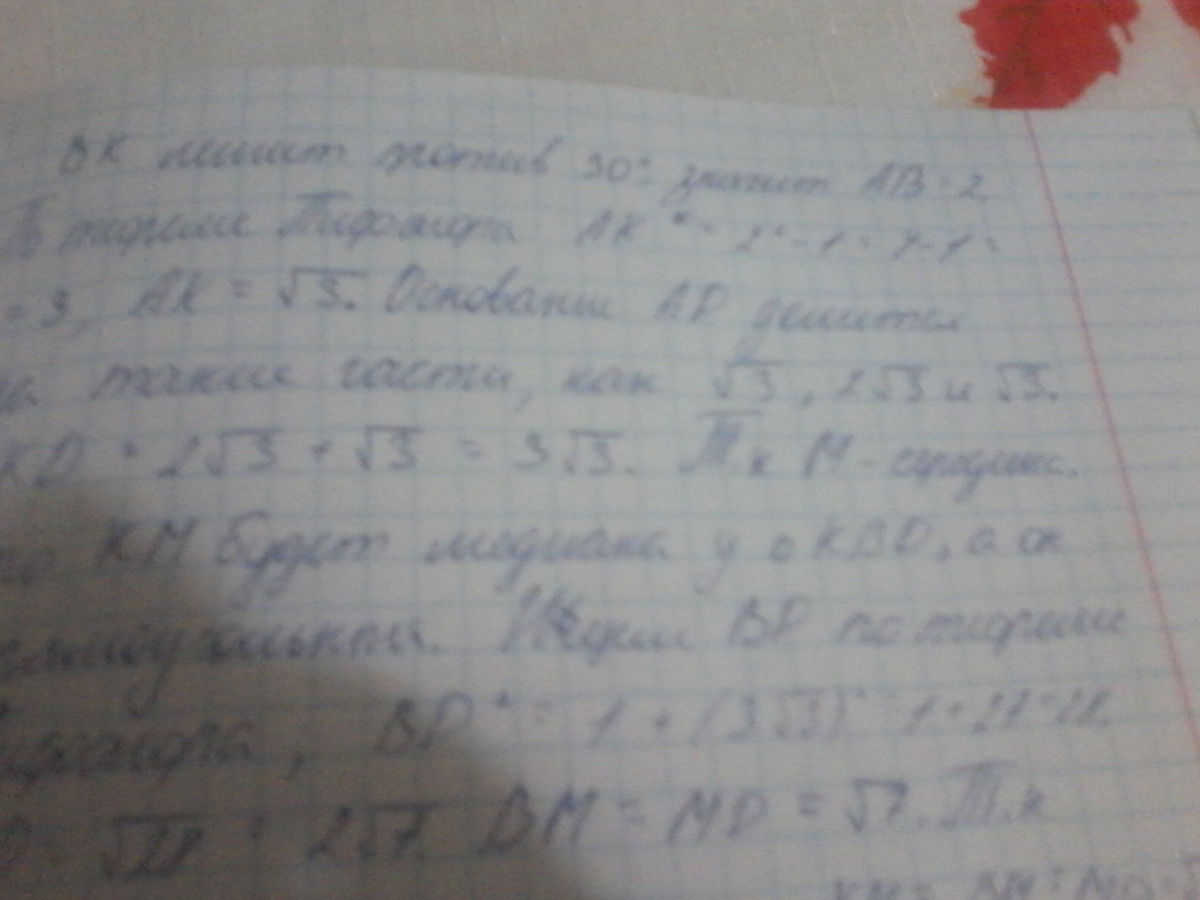 ВК лежит против 30° значит АВ = 2
По теореме Пифагора АК² = 2² - 1 = 4 - 1 =
= 3, АК = √3. Основание AD делится
на такие части, как √3, 2√3 и √3.
KD = 2√3 + √3 = 3√3. Т.к М - середина.
то КМ будет медиана у △KBD, а он
прямоугольный. Найдем BD по теореме
Пифагора, BD² = 1 + (3√3)² = 1 + 27 = 28
= √28 = 2√7. BM = MD = √7. Т.к
KM = BM = MD = √